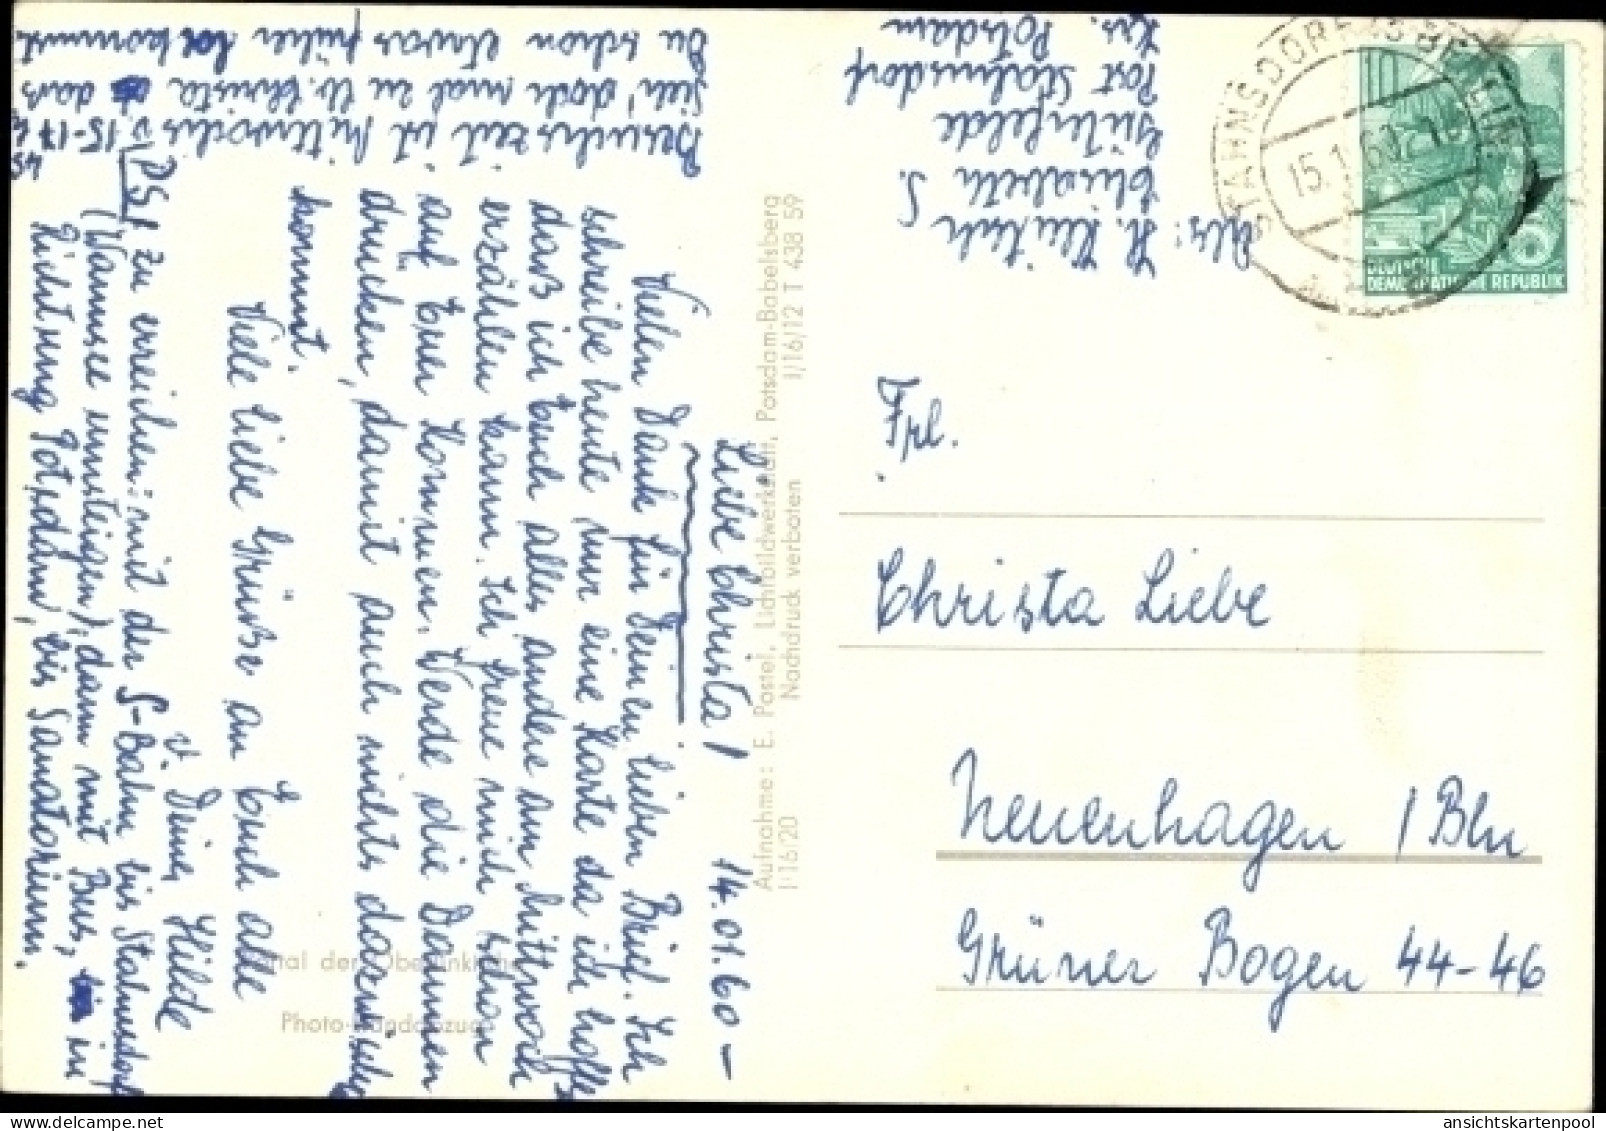 Liebe Christa! 14.01.60 –
Vielen Dank für Deinen lieben Brief. Ich
schreibe heute nur eine Karte da ich hoffe
daß ich Euch alles andere am Mittwoch
erzählen kann. Ich freue mich schon
auf Euer Kommen. Werde die Daumen
drücken, damit auch nichts dazwischen
kommt.
Viele liebe Grüße an Euch alle
v. Deiner Hilde
PS! zu erreichen: mit der S-Bahn bis Stahnsdorf
(Wannsee umsteigen), dann mit Bus, in
Richtung Potsdam, bis Sanatorium.
Besuchszeit ist Mittwochs v. 15-17
Sieh' doch mal zu lb. Christa daß
Du schon etwas früher kommst.
Abs: H.
Elisabeth S.
Güterfelde
Post Stahnsdorf
Krs. Potsdam
Aufnahme: E. Postel, Lichtbildwerkstatt, Potsdam-Babelsberg
I/16/20 Nachdruck verboten I/16/12 T 438 59
Photo-Handabzug
STAHNSDORF
15.1.60
10
DEUTSCHE
DEMOKRATISCHE REPUBLIK
Frl.
Christa Liebe
Neuenhagen / Bln
Grüner Bogen 44-46
ansichtskartenpool